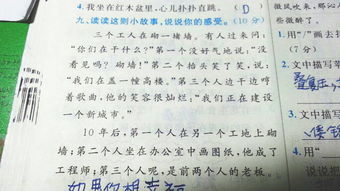 4.我坐在红木盆里,心儿扑扑直跳。 (D)
九、读读这则小故事,说说你的感受。(10分)
三个工人在砌一堵墙。有人过来问:
“你们在干什么?”第一个没好气地说:“没
看见吗?砌墙!”第二个抬头笑了笑,说:
“我们在盖一幢高楼。”第三个人边干边哼
着歌曲,他的笑容很灿烂:“我们正在建设
一个新城市。”
10年后,第一个人在另一个工地上砌
墙;第二个人坐在办公室中画图纸,他成了
工程师;第三个人呢,是前两个人的老板。
微风吹来,那沁
些微醉了。
1.用“/”画去括
(7分)
2.文中描写
3.文中描写
4.用“
说说把